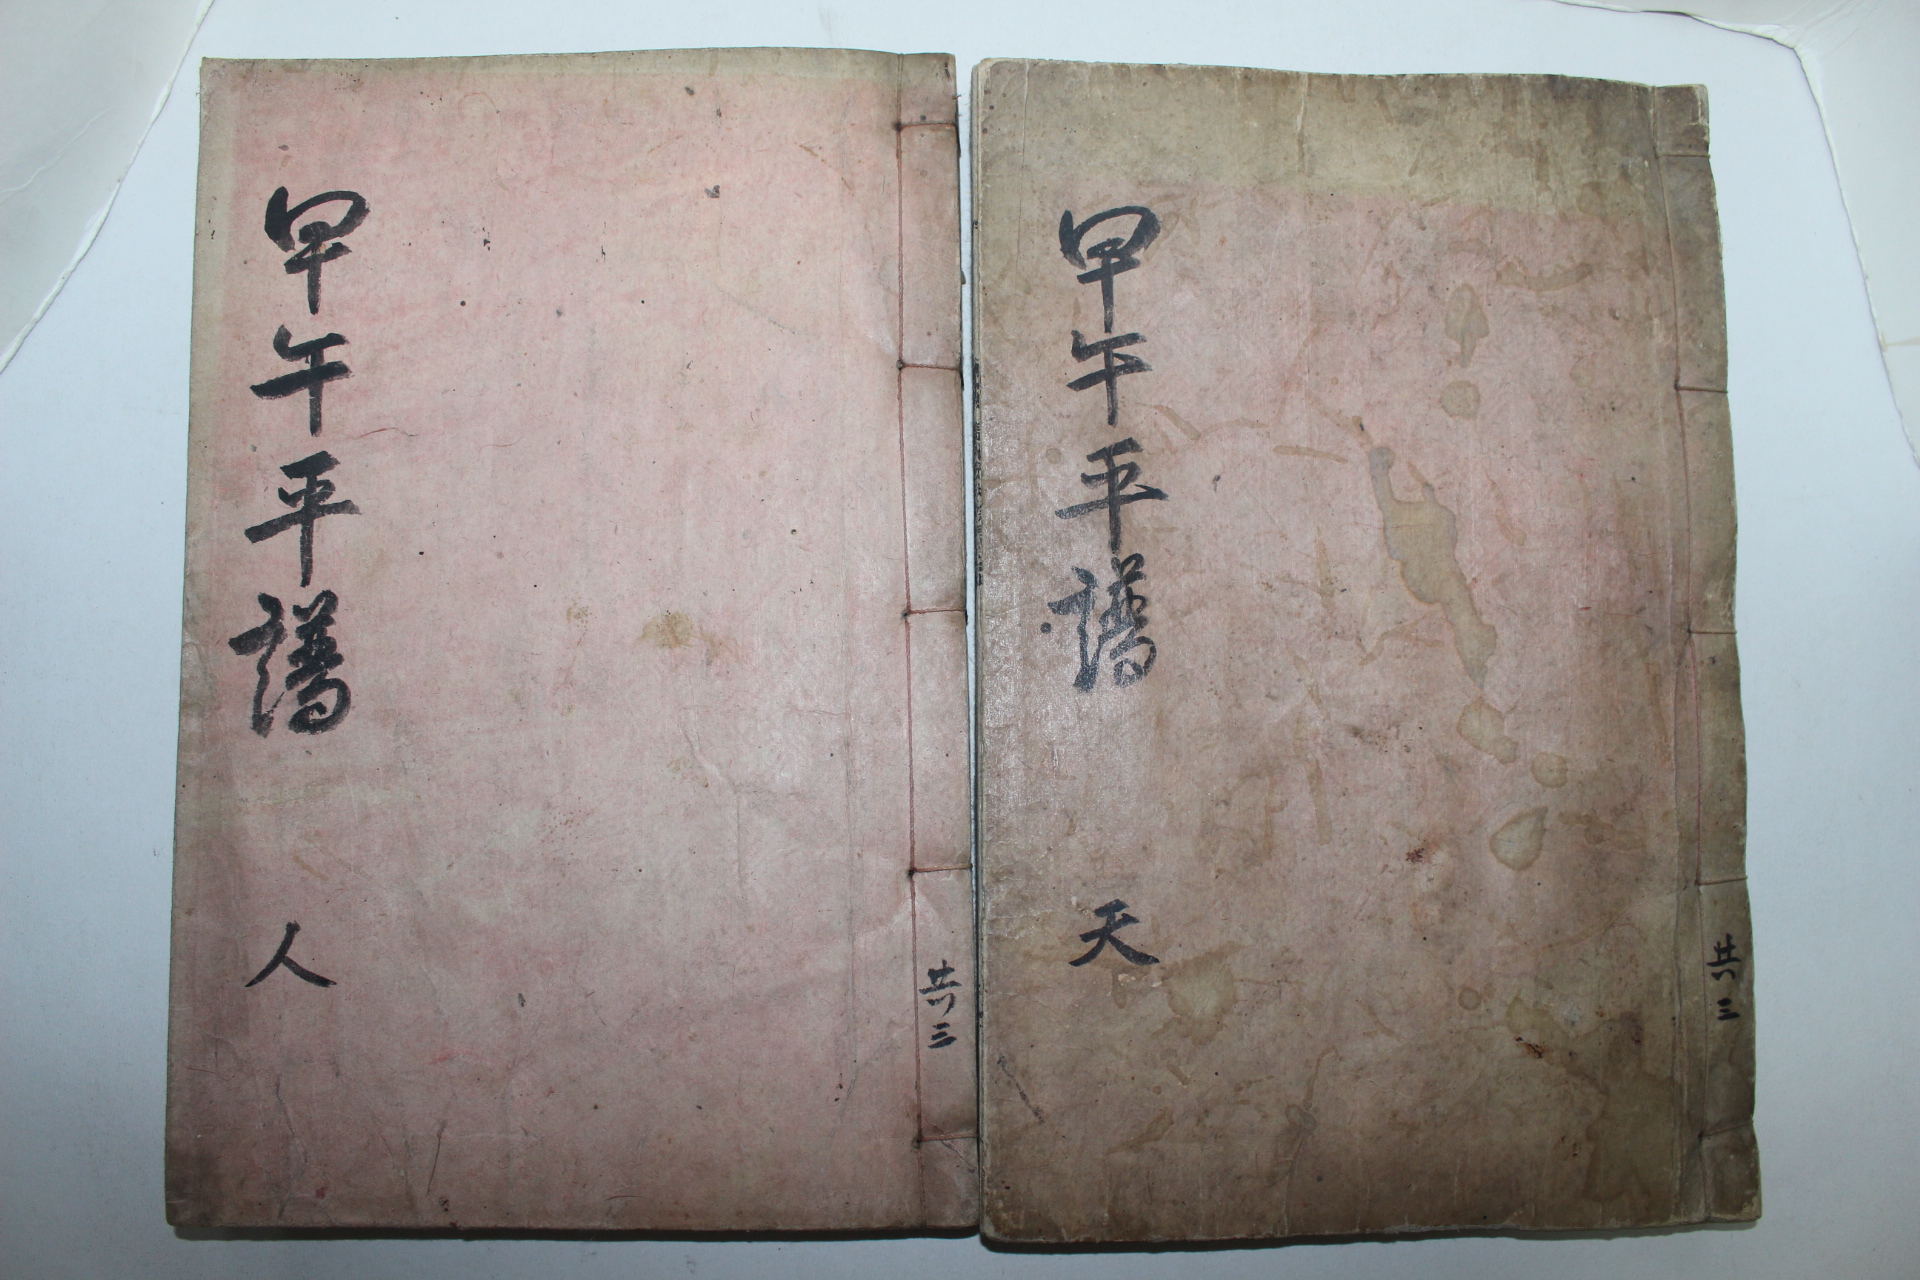 甲午平譜
天
共三
甲午平譜
人
共三